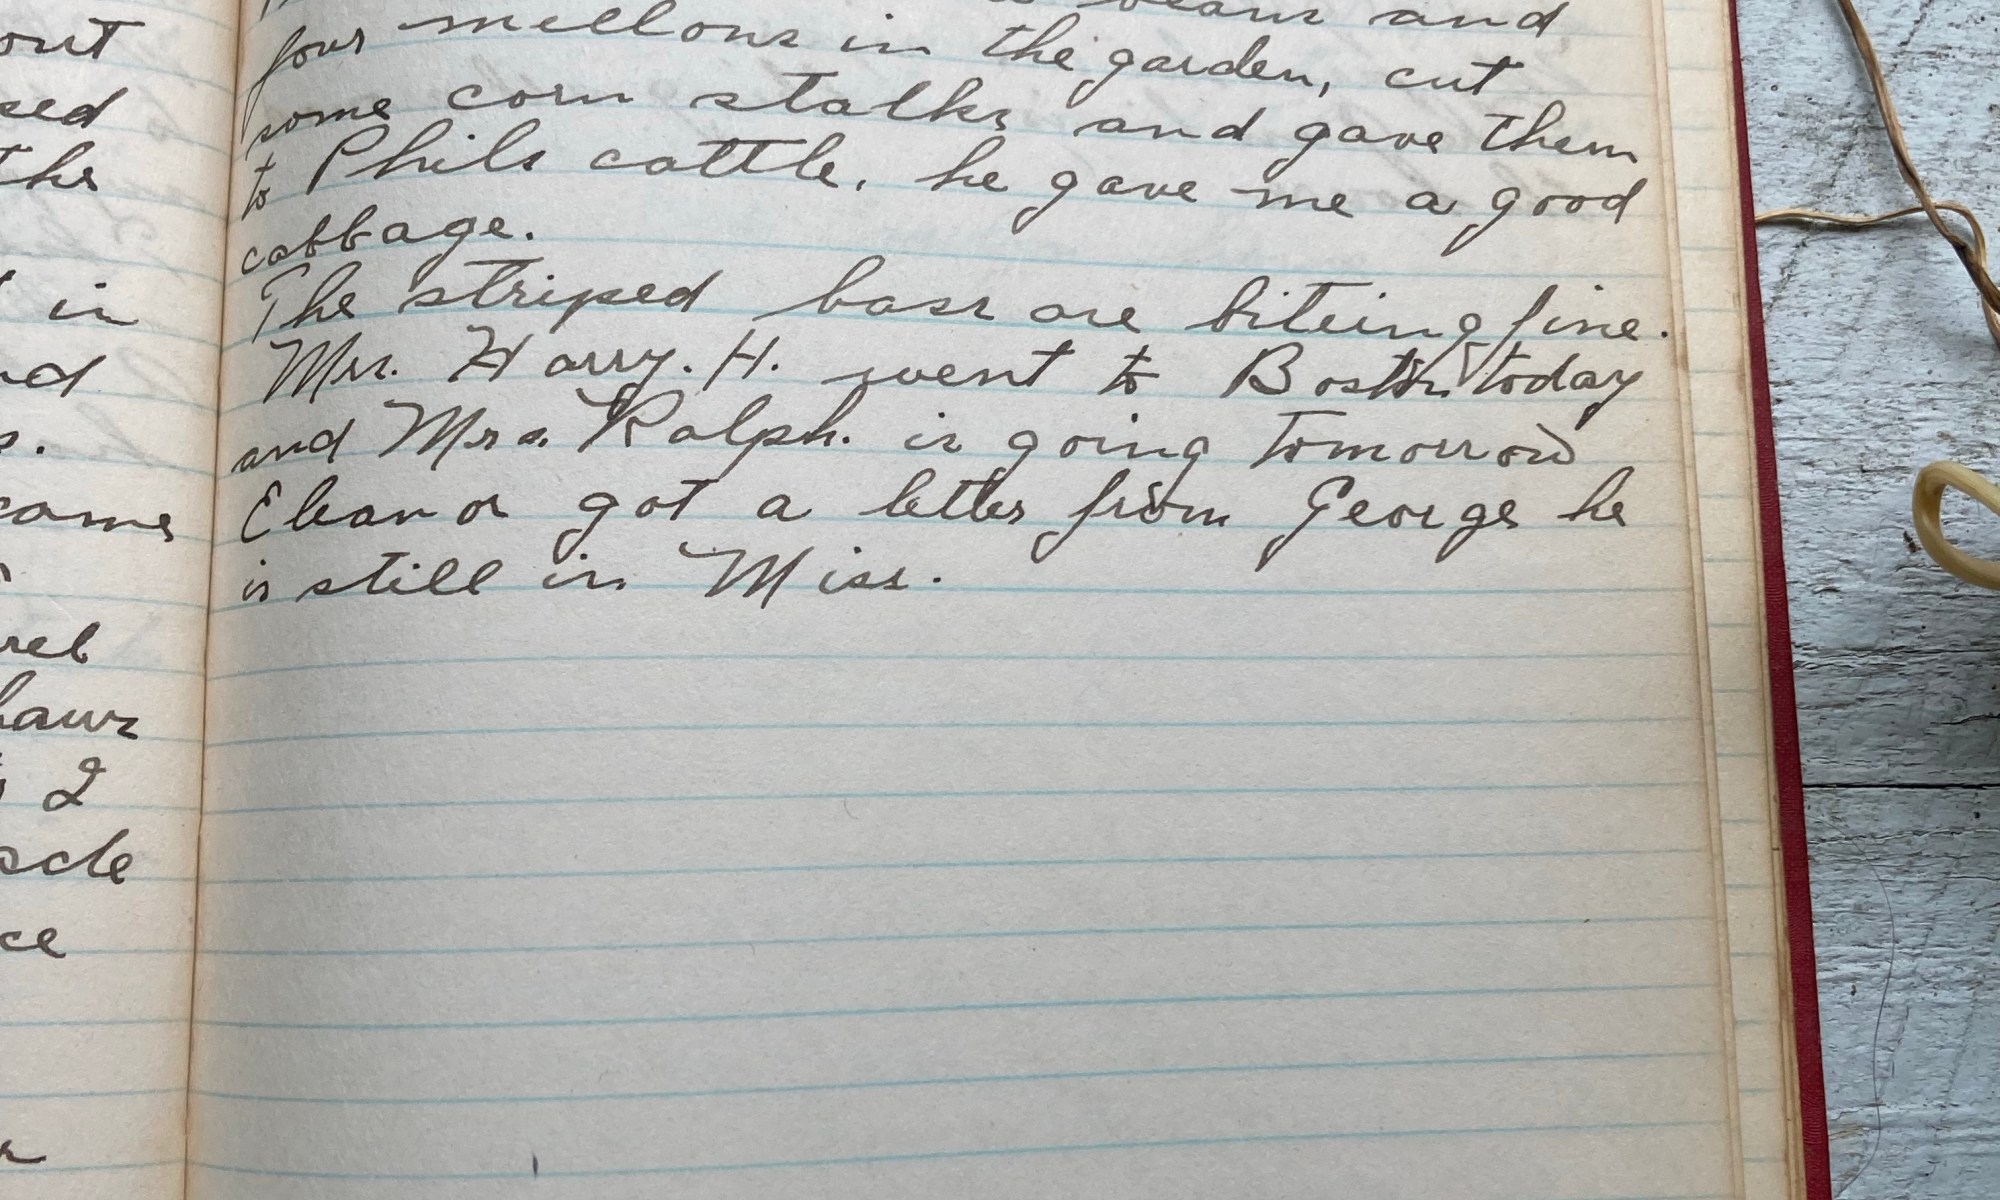 out
sed
the
in
nd
s.
came
rel
haws
I
scle
ce
beans and
four mellons in the garden, cut
some corn stalks and gave them
to Phils cattle, he gave me a good
cabbage.
The striped bass are biteing fine.
Mrs. Harry. H. went to Boston today
and Mrs. Ralph. is going tomorrow
Eleanor got a letter from George he
is still in Miss.